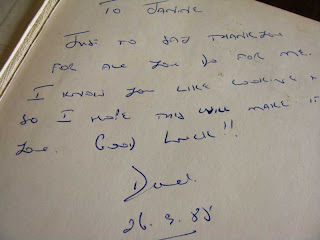 TO JANINE
JUST TO SAY THANKYOU
FOR ALL YOU DO FOR ME.
I KNOW YOU LIKE COOKING
SO I HOPE THIS WILL MAKE IT
GOOD LUCK!!
26.3.85